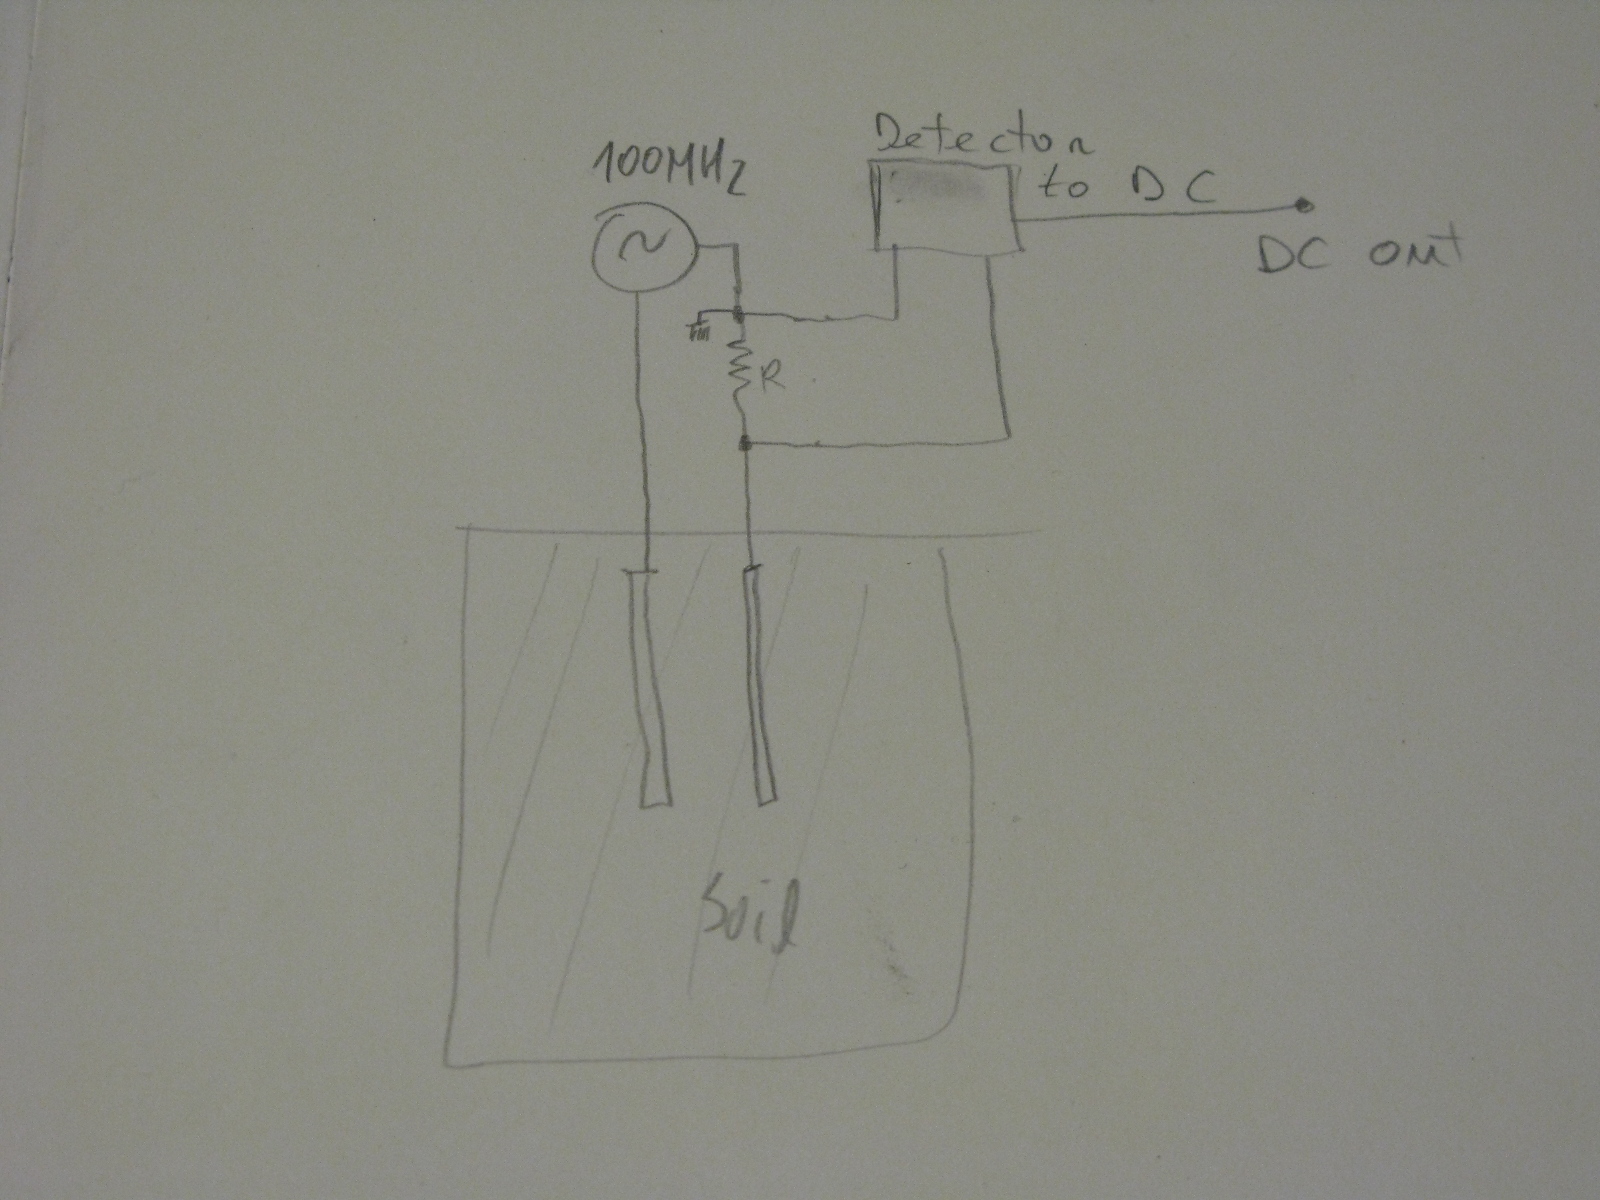 100MHz
Detector
to DC
DC out
R
Soil